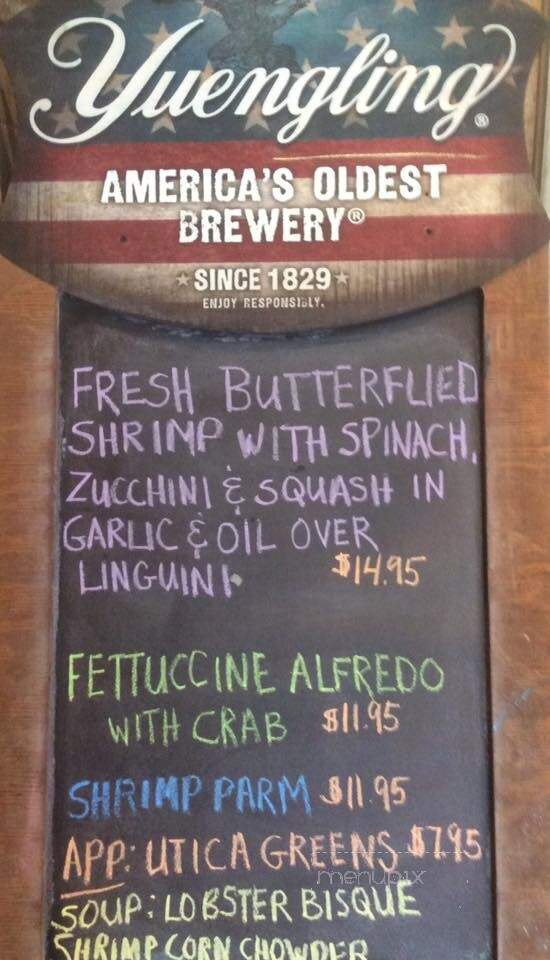 Yuengling®
AMERICA'S OLDEST
BREWERY®
SINCE 1829
ENJOY RESPONSIBLY.
FRESH BUTTERFLIED
SHRIMP WITH SPINACH,
ZUCCHINI & SQUASH IN
GARLIC & OIL OVER
LINGUINI $14.95
FETTUCCINE ALFREDO
WITH CRAB $11.95
SHRIMP PARM $11.95
APP: UTICA GREENS $7.95
menupix
SOUP: LOBSTER BISQUE
SHRIMP CORN CHOWDER